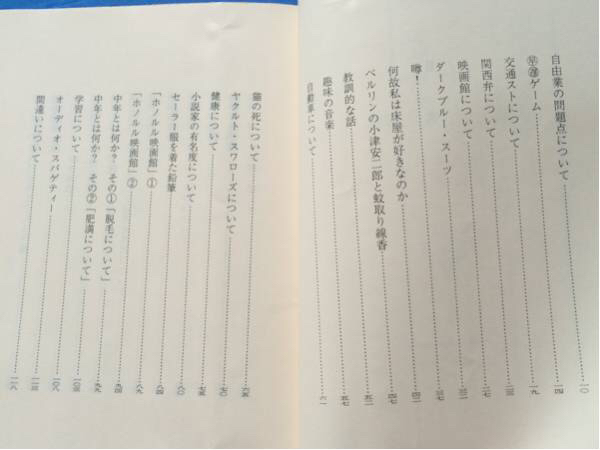 自由業の問題点について 一〇
ゲーム 一四
交通ストについて 一九
関西弁について 二三
映画館について 二七
ダークブルー・スーツ
噂! 三七
何故私は床屋が好きなのか 四二
ベルリンの小津安二郎と蚊取り線香 四七
教訓的な話 五二
趣味の音楽 五七
自動車について 六一
猫の死について 六五
ヤクルト・スワローズについて 七〇
健康について 七五
小説家の有名度について 八〇
セーラー服を着た鉛筆 八四
「ホノルル映画館」① 八九
「ホノルル映画館」② 九四
中年とは何か? その①「脱毛について」 九九
中年とは何か? その②「肥満について」 一〇三
学習について 一〇八
オーディオ・スパゲティー 一一三
間違いについて 一一八